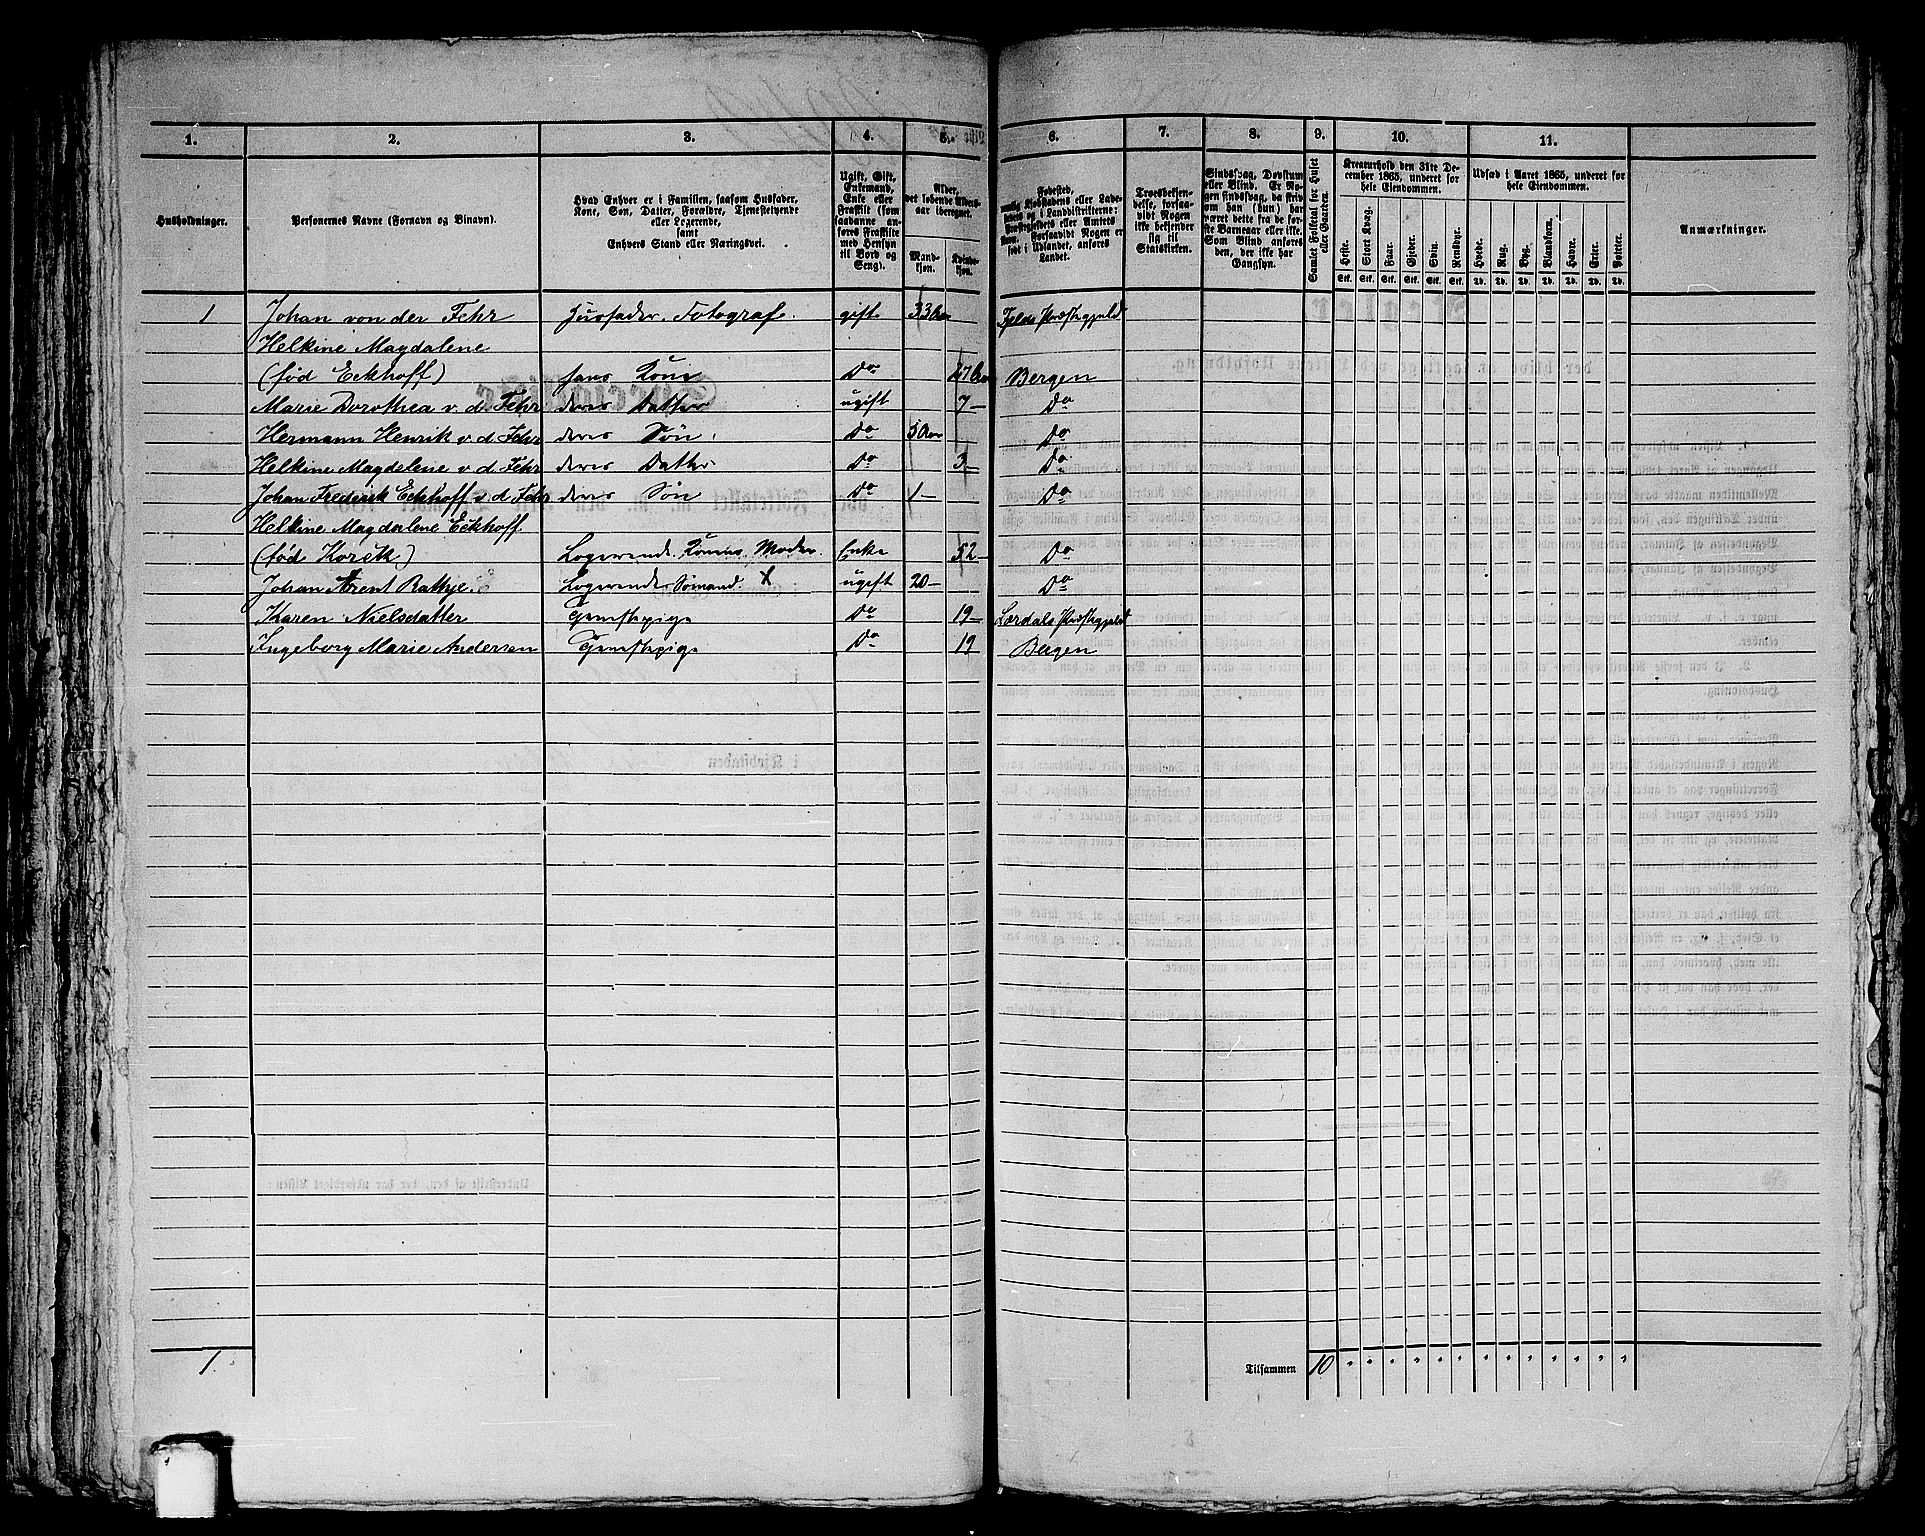 1. 2. 3. 4. 5. 6. 7. 8. 9. 10. 11.
Husholdninger.
Personernes Navne (Fornavn og Binavn).
Hvad Enhver er i Familien, saasom Husfader,
Kone, Søn, Datter, Forældre, Tjenestetyende
eller Logerende,
samt
Enhvers Stand eller Næringsvei.
Ugift, Gift,
Enkemand,
Enke eller
Fraskilt (som
saadanne an-
føres Fraskilte
med Hensyn
til Bord og
Seng).
Alder,
det løbende Alders-
aar iberegnet.
Mand-
kjøn.
Kvinde-
kjøn.
Fødested,
Landet.
Troesbekjen-
delse, forsaa-
vidt Nogen
ikke bekjender
sig til
Statskirken.
Sindssvag, Døvstum
eller Blind. Er No-
gen sindssvag, da skriv
om han (hun) har
været dette fra de før-
ste Barneaar eller ikke.
Som Blind anføres
den, der ikke har
Gangsyn.
Samlet Folketal for Huset
eller Gaarden.
Kreaturhold den 31te De-
cember 1865, underet for
hele Eiendommen.
Heste. Stort Kvæg. Faar. Gjeder. Svin. Rensdyr.
Stk. Stk. Stk. Stk. Stk. Stk.
Udsæd i Aaret 1865, underet for
hele Eiendommen.
Hvede. Rug. Byg. Blandkorn. Havre. Erter. Poteter.
Td. Td. Td. Td. Td. Td. Td.
Anmærkninger.
1 Johan von der Fehr Husfader, Fotograf. gift 33 Aar Fjelds Præstegjeld
Helkine Magdalene
(fød Eckhoff) hans Kone Do 27 Aar Bergen
Marie Dorothea v. d. Fehr deres Datter ugift 7 — Do
Hermann Henrik v. d. Fehr deres Søn. Do 5 Aar Do
Helkine Magdalene v. d. Fehr deres Datter Do 3 — Do
Johan Frederik Eckhoff v. d. Fehr deres Søn Do 1 — Do
Helkine Magdalene Eckhoff
(fød Korsik) Logerende. Konens Moder. Enke 52 — Do
Johan Arent Rathje. Logerende Sømand. X ugift 20 — Do
Karen Nielsdatter Tjenestepige Do 19 — Lærdals Præstegjeld
Ingeborg Marie Andersen Tjenestepige Do 19 Bergen
1. Tilsammen 10 " " " " " " " " " " " " "